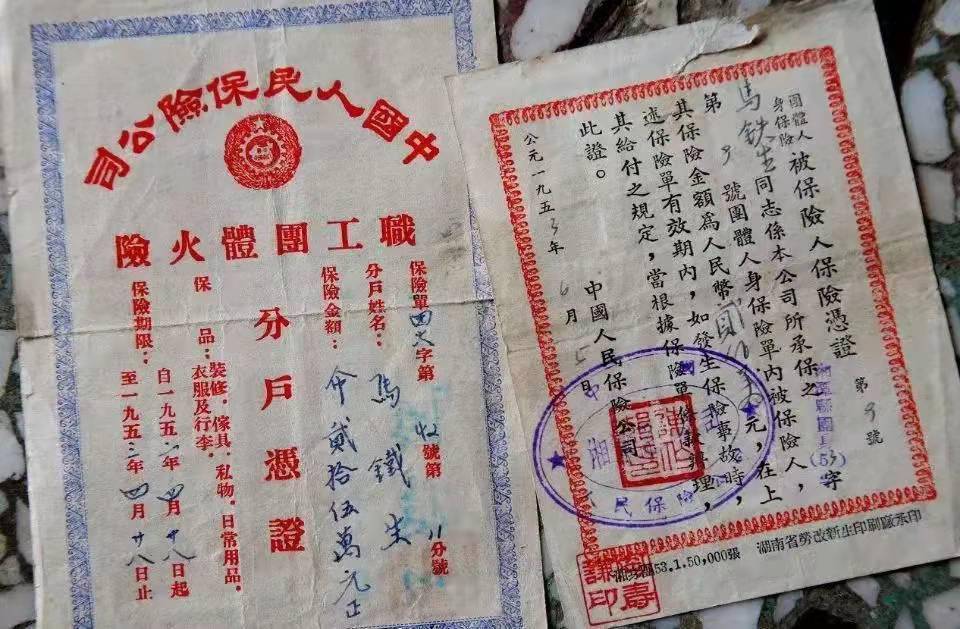 中國人民保險公司
職工團體火險
分戶憑證
保險單田火字第 號第11分號
分戶姓名：馬鐵生
保險金額：貳拾伍萬元正
保品：裝修、傢具、私物、日常用品、
衣服及行李。
保險期限：自一九五二年四月廿八日起
至一九五三年四月廿八日止
團體人身保險被保險人保險憑證
(53)字第9號
馬鉄生同志係本公司所承保之
第9號團體人身保險單內被保險人，
其保險金額為人民幣 元，在上
述保險單有效期內，如發生保險事故時，
其給付之規定，當根據保險單條款辦理，
此證。
中國人民保險公司
公元一九五3年6月5日
53.1.50,000張 湖南省勞改新生印刷廠承印